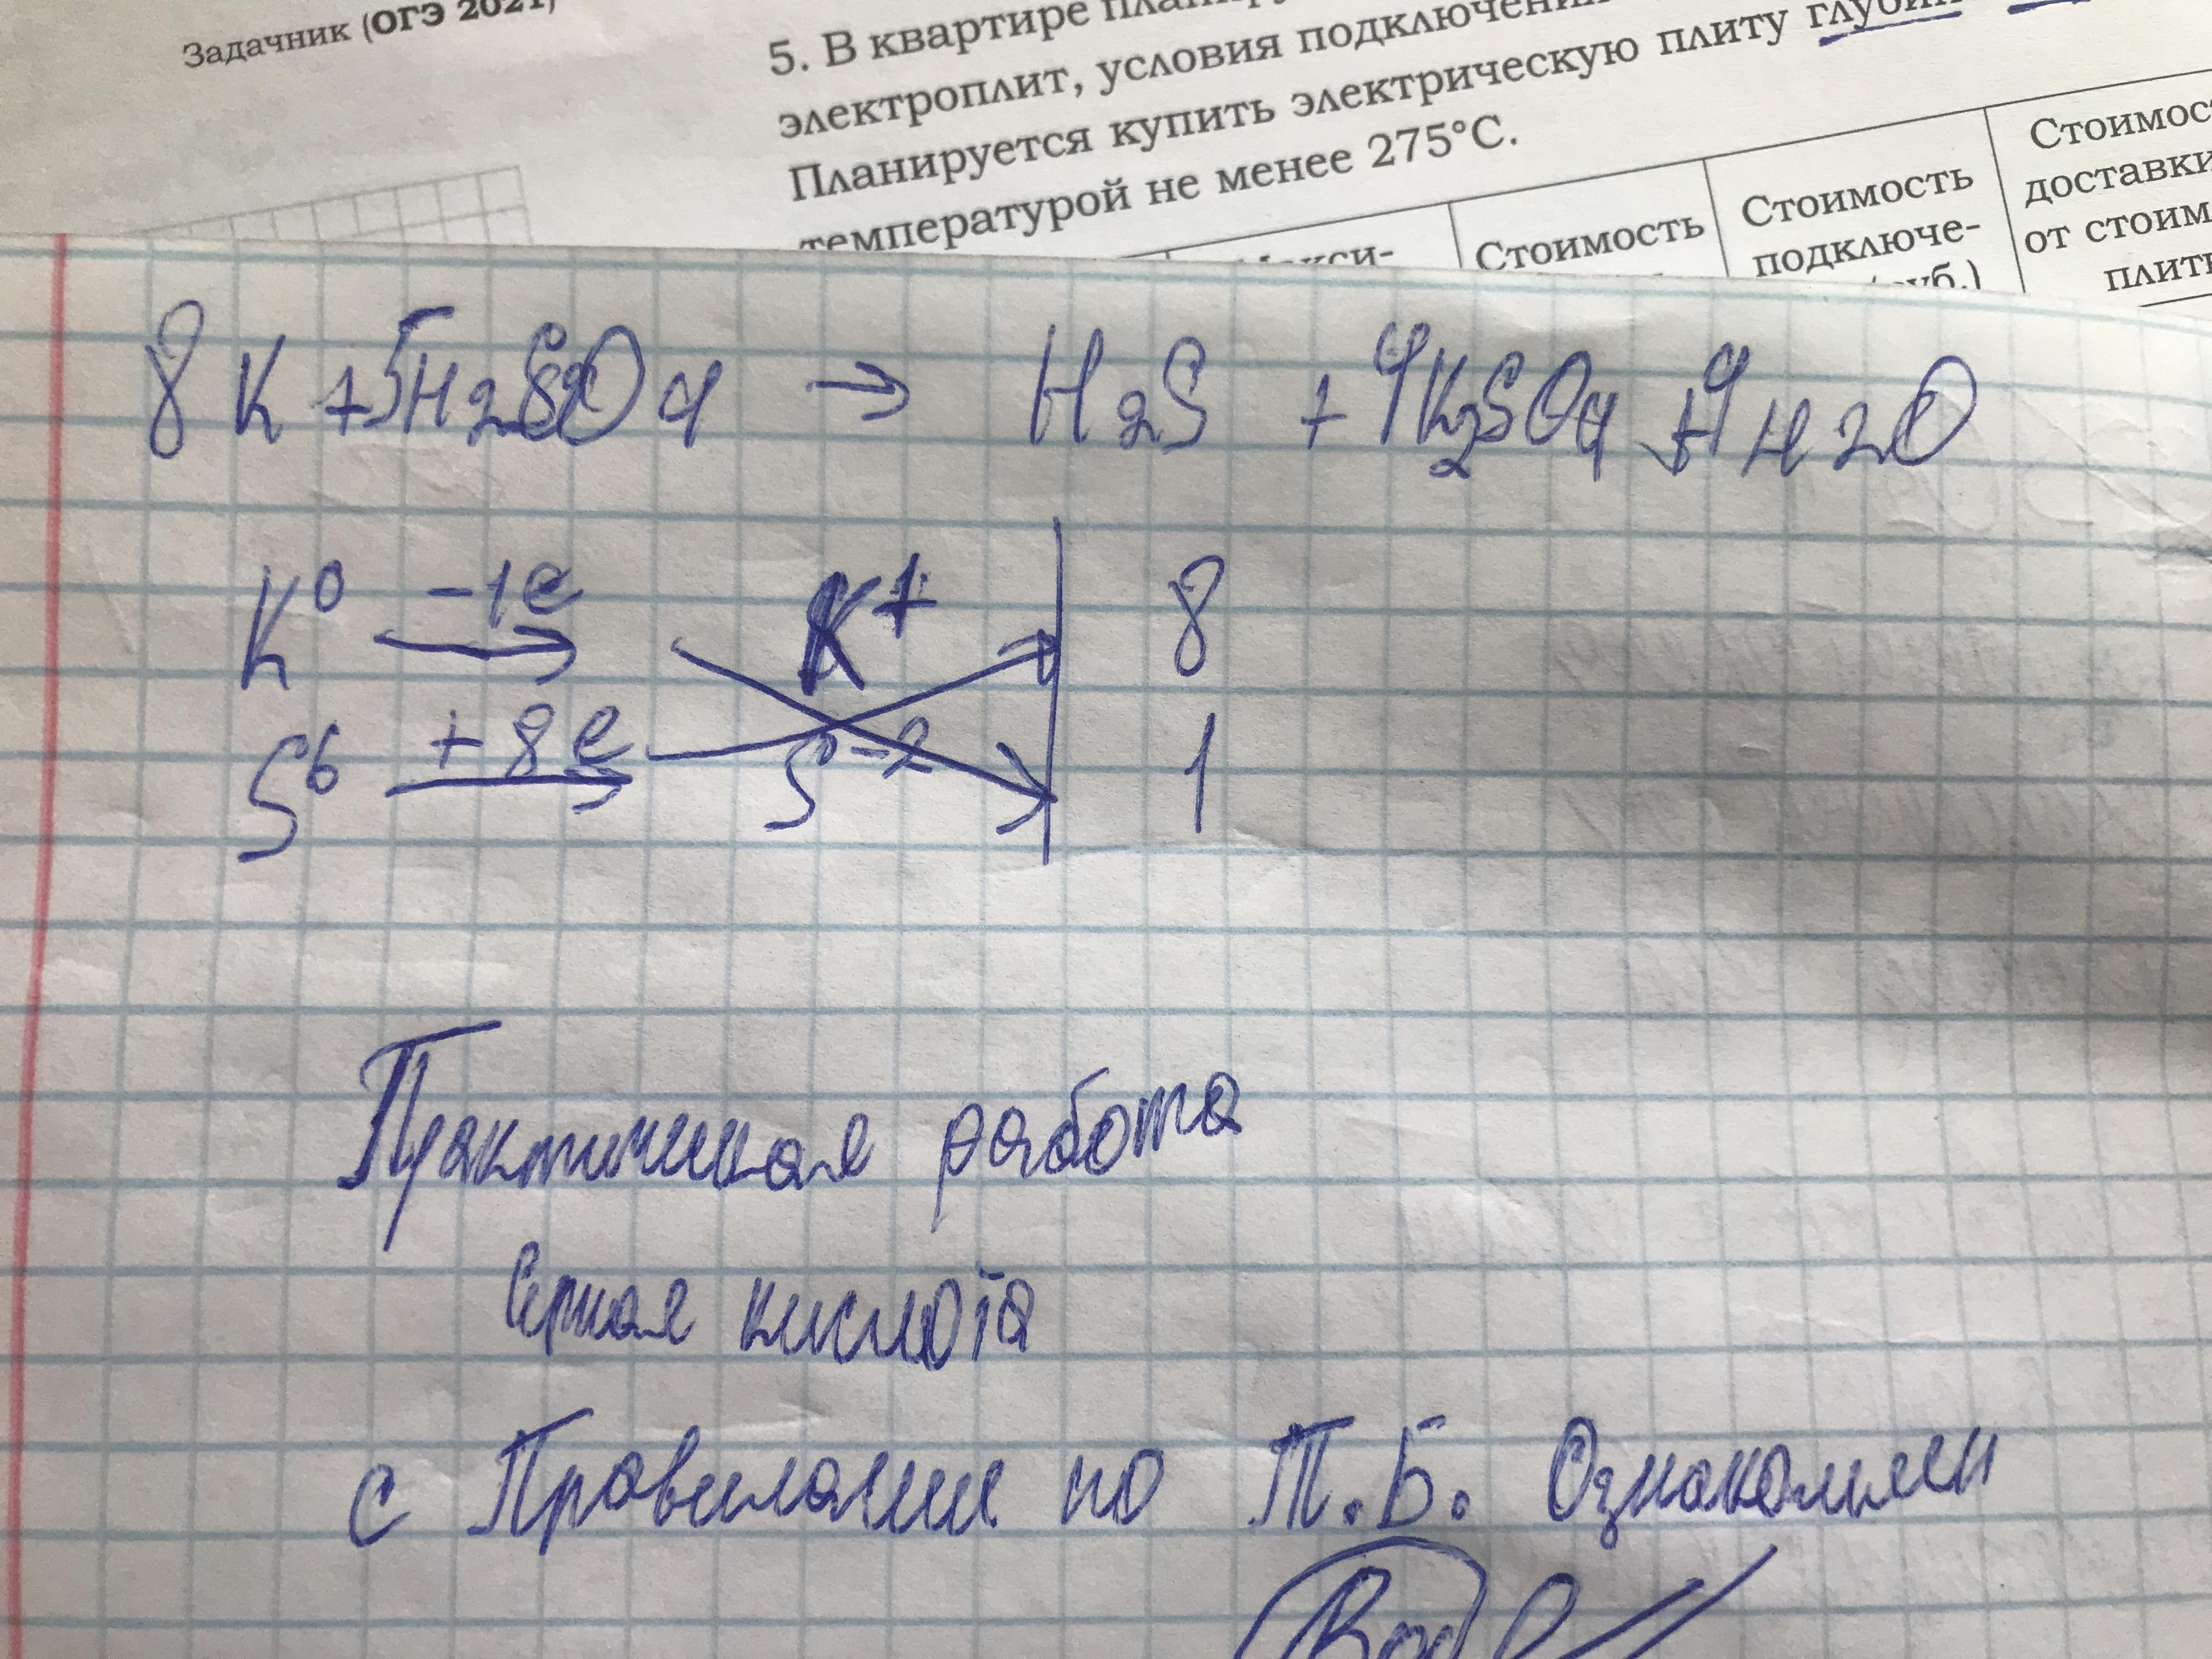 Задачник (ОГЭ 2021)
5. В квартире
электроплит, условия подключения
Планируется купить электрическую плиту
температурой не менее 275°С.
Стоимость
Стоимость
подключе-
доставки
от стоим
8K + 5H2SO4 → H2S + 4K2SO4 + 4H2O
K0 -1e K+ 8
S6 +8e S-2 1
Практическая работа
Серная кислота
с Правилами по Т.Б. Ознакомлен